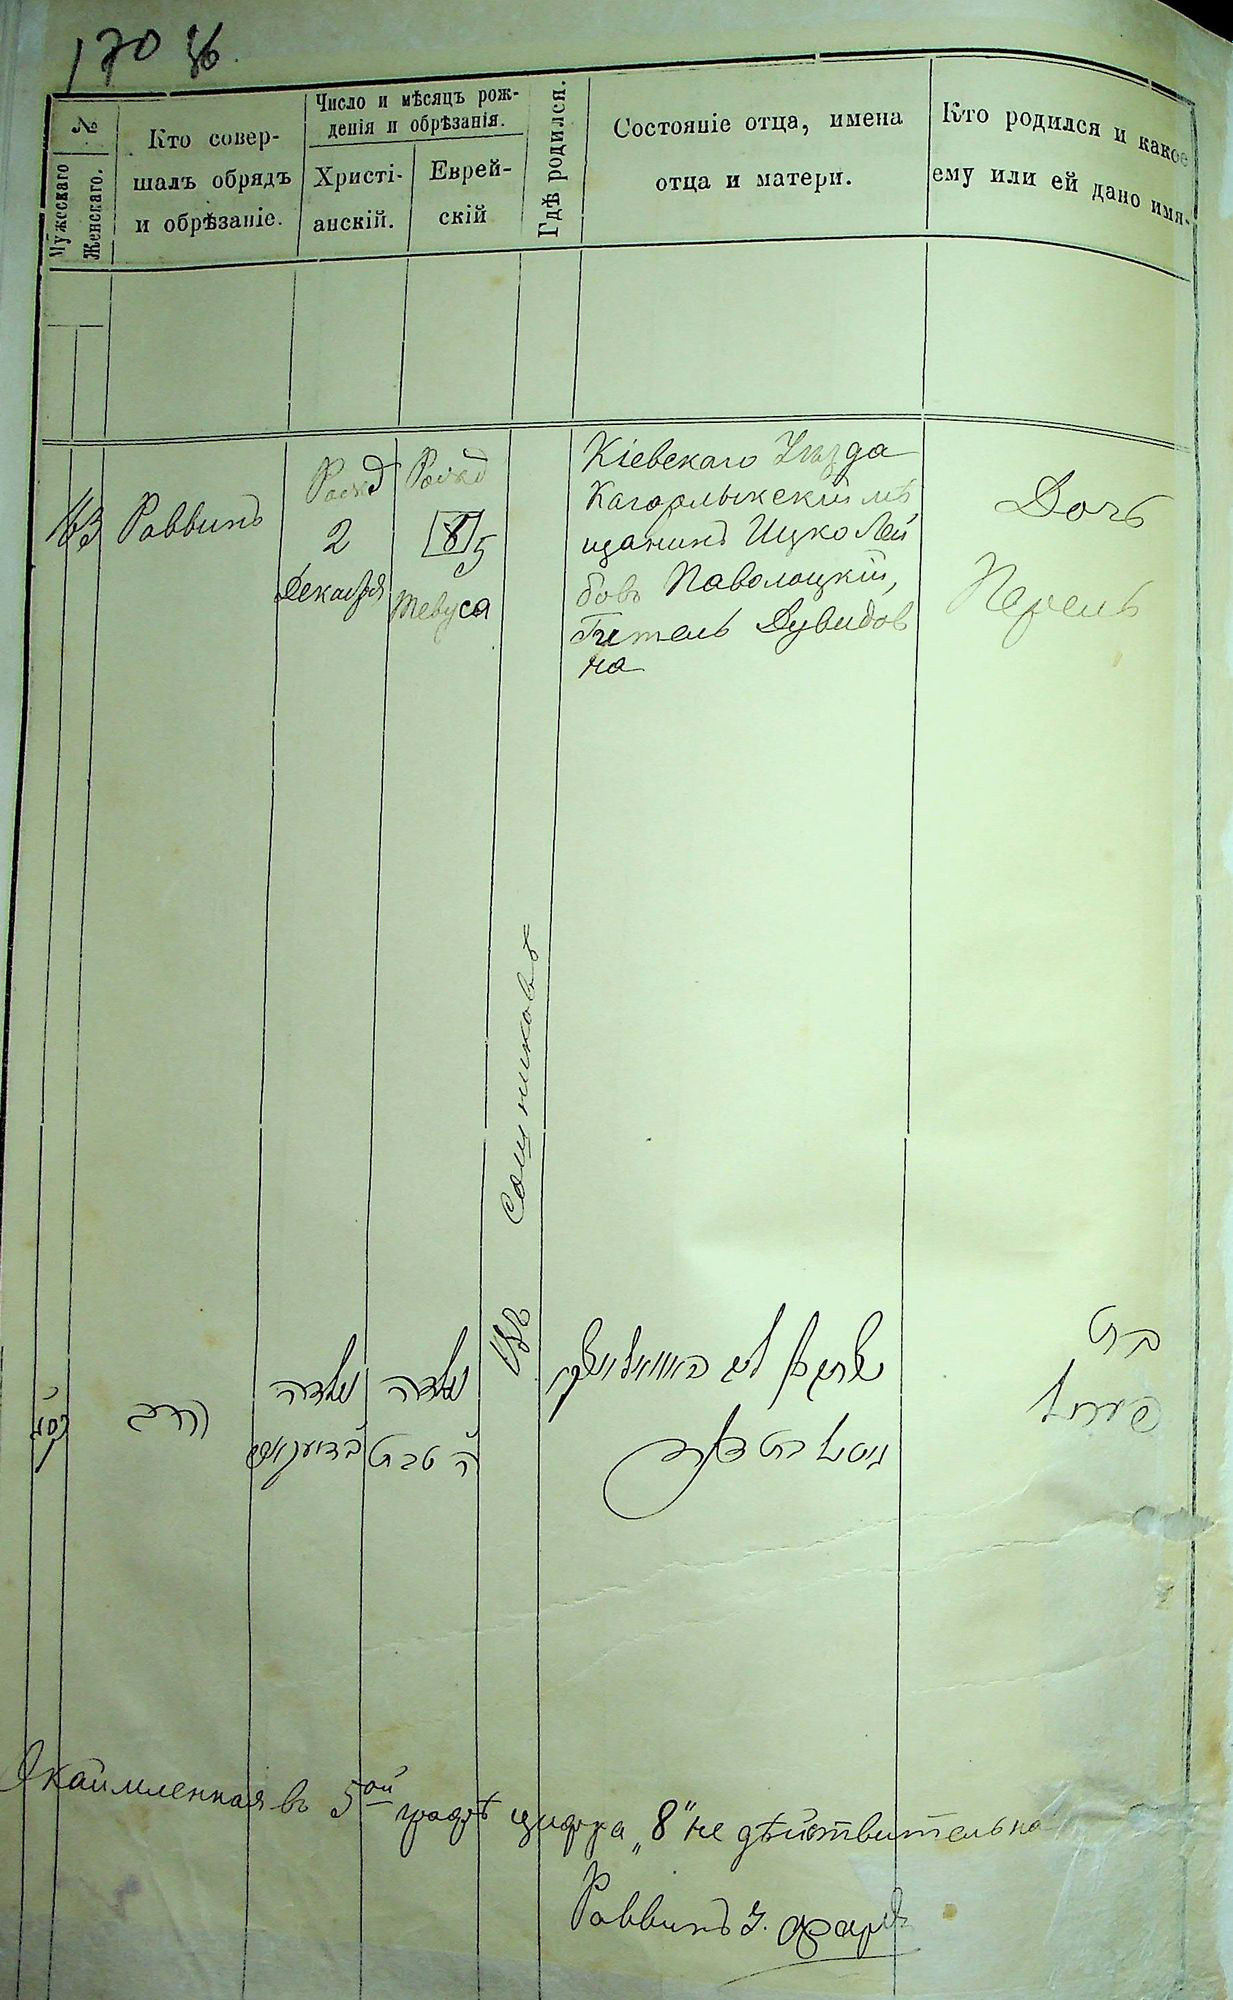 170 об.
№
Мужескаго
Женскаго.
Кто совер-
шалъ обрядъ
и обрѣзаніе.
Число и мѣсяцъ рож-
денія и обрѣзанія.
Христі-
анскій.
Еврей-
скій
Гдѣ родился.
Состояніе отца, имена
отца и матери.
Кто родился и какое
ему или ей дано имя.
163
Раввинъ
Рожд
2
Декабря
Рожд
8 5
Тевуса
Въ Сошниковѣ
Кіевскаго Уѣзда
Кагарлыкскій мѣ
щанинъ Ицко Лей
бовъ Паволоцкій,
Гитель Дувидов
на
Дочь
Перель
הרב
נולדה
נולדה
ה' טבת
בת
פערל
Окаймленная въ 5ой графѣ цифра „8“ не дѣйствительна
Раввинъ